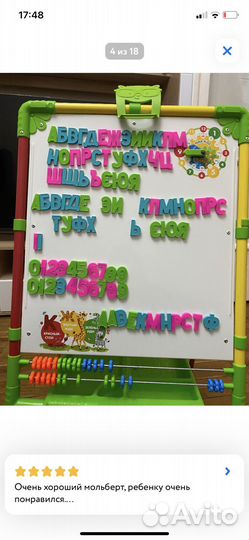 17:48
4 из 18
АБВГДЕЖЗИЙКЛМ
НОПРСТУФХЧЦ
ШЩЬЪЭЮЯ
АБВГДЕ ЗИ КЛМНОПРС
ТУФХ Ь ЭЮЯ
0123456789
0123456789
АВЕКМНРСТФ
Очень хороший мольберт, ребенку очень
понравился....
Avito